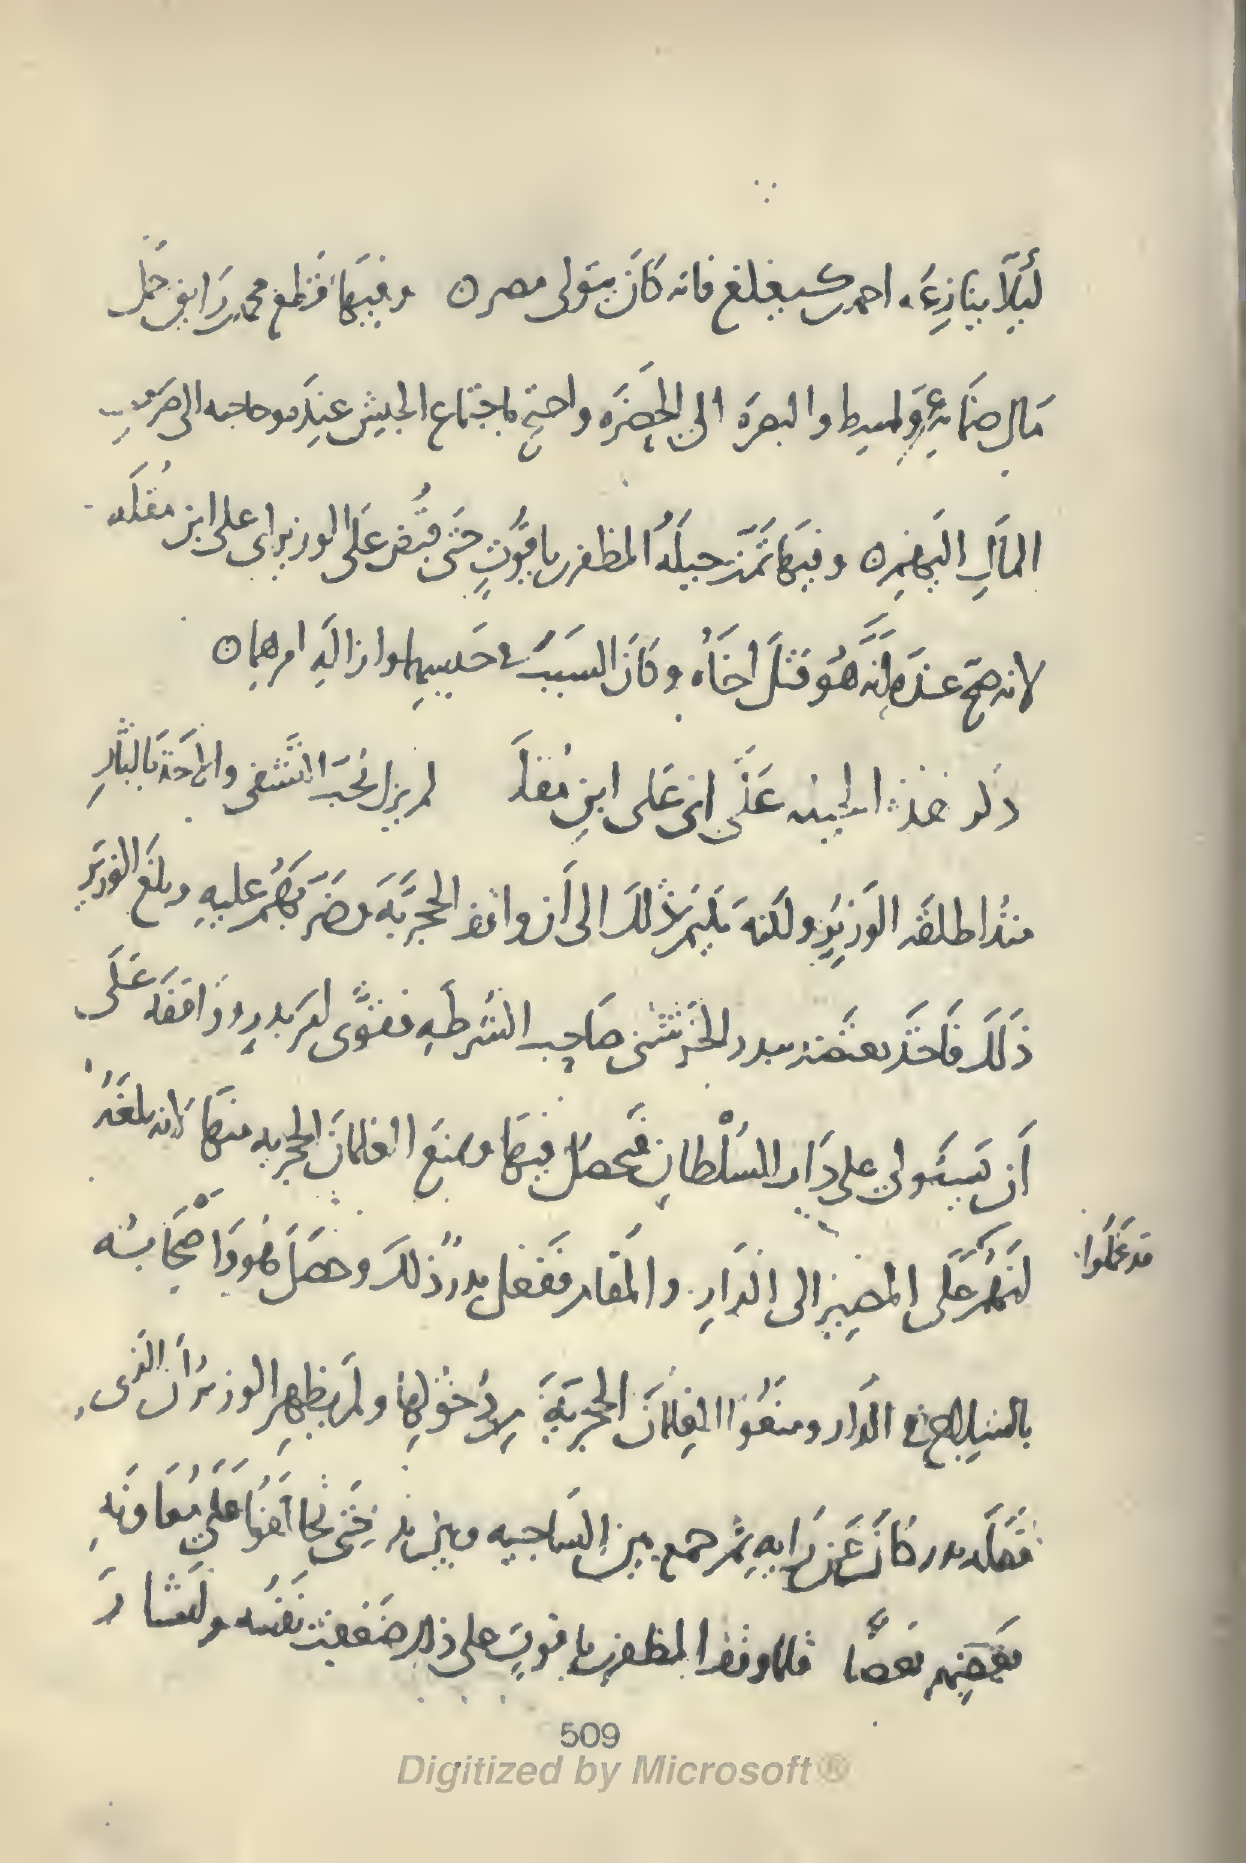 لئلا ينازعه احمد بن كيغلغ فانه كان يتولى مصر ن وفيها قطع محمد بن رايق حمل
مال ضمانه عن واسط والبصرة الى الحضرة واحتج باجتماع الجيش عنده وحاجته الى صرف
المال اليهم ن وفيها تمت حيلة المظفر بن ياقوت حتى قبض على الوزير ابى على ابن مقله
لانه صح عنده انه هو قتل اخاه وكان السبب فى حبسهما وازالة امرهما ن
ذكر هذه الحيله على ابى على ابن مقلة لم يزل يحب التشفى والاخذ بالثار
منذ اطلقه الوزير ولكنه يكتم ذلك الى أن وافق الحجرية وضربهم عليه وبلغ الوزير
ذلك فاخذ يعتضد ببدر الخرشنى صاحب الشرطه فقوى امر بدر ووافقه على
أن يستولى على دار السلطان فيحصل فيها ويمنع الغلمان الحجريه منها لانه بلغه
انهم على المصير الى الدار والمقام ففعل بدر ذلك وحصل هو واصحابه
قد عملوا
بالسلاح فى الدار ومنعوا الغلمان الحجرية من دخولها ولم يظهر الوزير أن الذى
فعله بدر كان عن رايه ثم جمع بين الساجيه وبين بدر حتى تحالفوا على معاونة
بعضهم بعضا فلما وقف المظفر بن ياقوت على ذلك ضعفت نفسه واشار
509
Digitized by Microsoft®